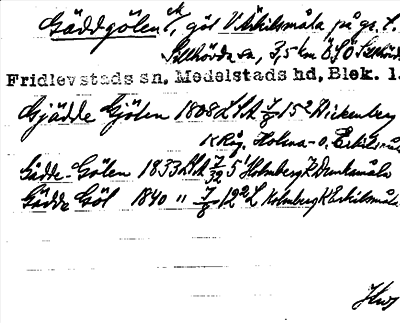 Gäddgölen, göl V Eskilsmåla på gr. t.
Sillhövda sn, 3,5 km ÖSÖ Sillhövda
Fridlevstads sn, Medelstads hd, Blek. l.
Gjädde Gjölen 1808 LSA 15² Wickenberg
K Råg. Holma- o. Eskilsmåla
Gädde-Gölen 1833 LSA 5¹ Holmberg K Dunkamåla
Gädde Göl 1840 " 12² L Holmberg K Eskilsmåla